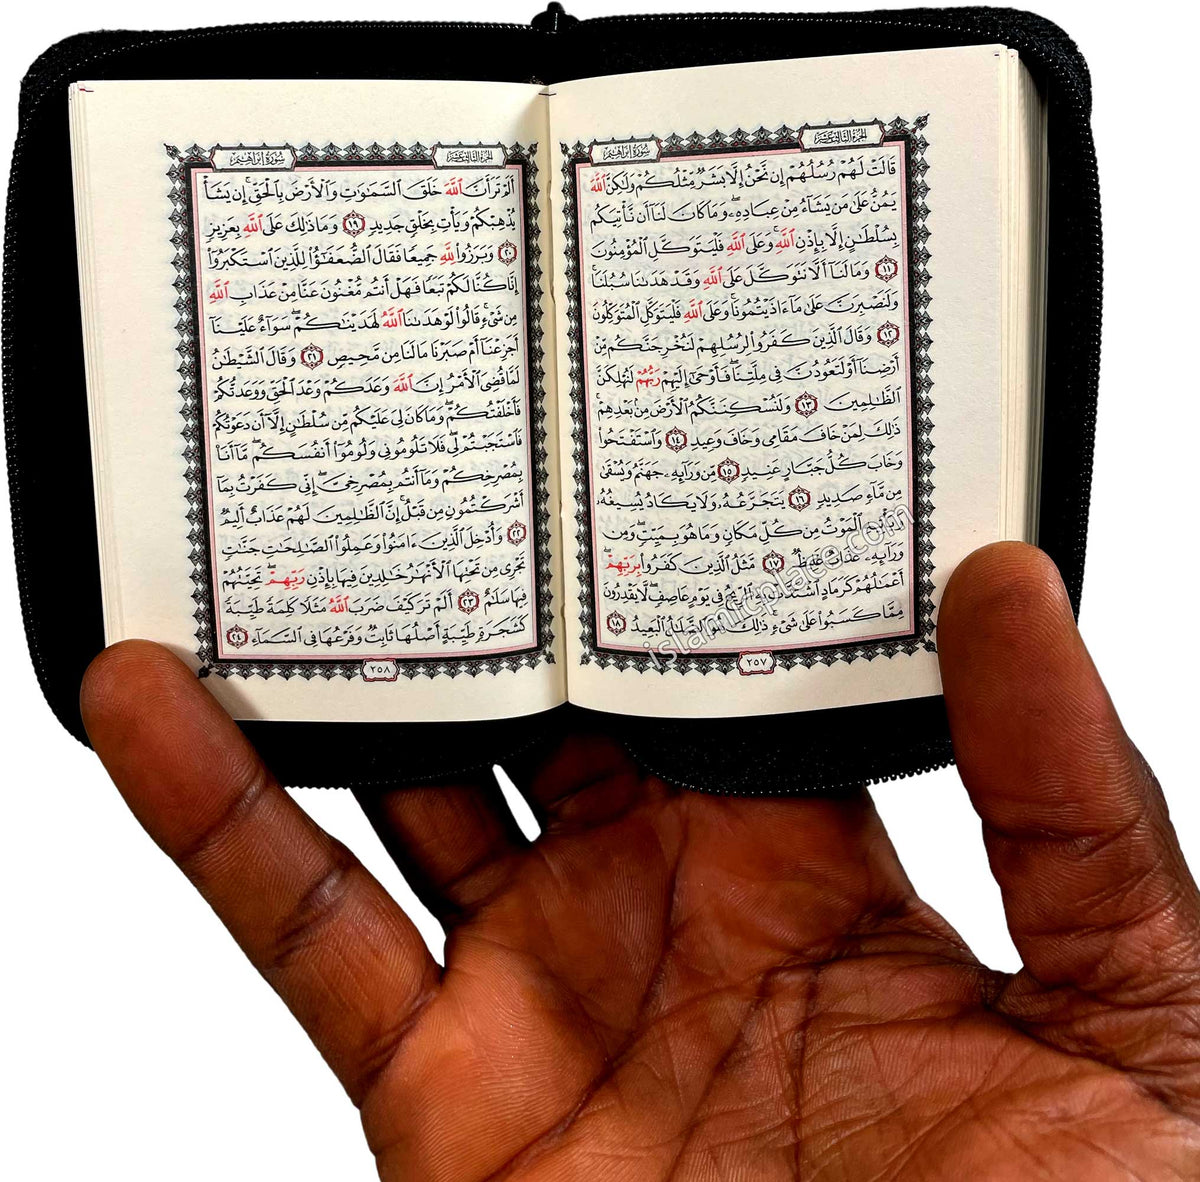 الجزء الثالث عشر
سورة إبراهيم
قَالَتْ لَهُمْ رُسُلُهُمْ إِن نَّحْنُ إِلَّا بَشَرٌ مِّثْلُكُمْ وَلَٰكِنَّ ٱللَّهَ
يَمُنُّ عَلَىٰ مَن يَشَآءُ مِنْ عِبَادِهِۦ وَمَا كَانَ لَنَآ أَن نَّأْتِيَكُم
بِسُلْطَٰنٍ إِلَّا بِإِذْنِ ٱللَّهِ وَعَلَى ٱللَّهِ فَلْيَتَوَكَّلِ ٱلْمُؤْمِنُونَ
١١ وَمَا لَنَآ أَلَّا نَتَوَكَّلَ عَلَى ٱللَّهِ وَقَدْ هَدَىٰنَا سُبُلَنَا
وَلَنَصْبِرَنَّ عَلَىٰ مَآ ءَاذَيْتُمُونَا وَعَلَى ٱللَّهِ فَلْيَتَوَكَّلِ ٱلْمُتَوَكِّلُونَ
١٢ وَقَالَ ٱلَّذِينَ كَفَرُوا۟ لِرُسُلِهِمْ لَنُخْرِجَنَّكُم مِّنْ
أَرْضِنَآ أَوْ لَتَعُودُنَّ فِى مِلَّتِنَا فَأَوْحَىٰٓ إِلَيْهِمْ رَبُّهُمْ لَنُهْلِكَنَّ
ٱلظَّٰلِمِينَ ١٣ وَلَنُسْكِنَنَّكُمُ ٱلْأَرْضَ مِنۢ بَعْدِهِمْ
ذَٰلِكَ لِمَنْ خَافَ مَقَامِى وَخَافَ وَعِيدِ ١٤ وَٱسْتَفْتَحُوا۟
وَخَابَ كُلُّ جَبَّارٍ عَنِيدٍ ١٥ مِّن وَرَآئِهِۦ جَهَنَّمُ وَيُسْقَىٰ
مِن مَّآءٍ صَدِيدٍ ١٦ يَتَجَرَّعُهُۥ وَلَا يَكَادُ يُسِيغُهُۥ
وَيَأْتِيهِ ٱلْمَوْتُ مِن كُلِّ مَكَانٍ وَمَا هُوَ بِمَيِّتٍ وَمِن
وَرَآئِهِۦ عَذَابٌ غَلِيظٌ ١٧ مَّثَلُ ٱلَّذِينَ كَفَرُوا۟ بِرَبِّهِمْ
أَعْمَٰلُهُمْ كَرَمَادٍ ٱشْتَدَّتْ بِهِ ٱلرِّيحُ فِى يَوْمٍ عَاصِفٍ لَّا يَقْدِرُونَ
مِمَّا كَسَبُوا۟ عَلَىٰ شَىْءٍ ذَٰلِكَ هُوَ ٱلضَّلَٰلُ ٱلْبَعِيدُ ١٨
٢٥٧
الجزء الثالث عشر
سورة إبراهيم
أَلَمْ تَرَ أَنَّ ٱللَّهَ خَلَقَ ٱلسَّمَٰوَٰتِ وَٱلْأَرْضَ بِٱلْحَقِّ إِن يَشَأْ
يُذْهِبْكُمْ وَيَأْتِ بِخَلْقٍ جَدِيدٍ ١٩ وَمَا ذَٰلِكَ عَلَى ٱللَّهِ بِعَزِيزٍ
٢٠ وَبَرَزُوا۟ لِلَّهِ جَمِيعًا فَقَالَ ٱلضُّعَفَٰٓؤُا۟ لِلَّذِينَ ٱسْتَكْبَرُوٓا۟
إِنَّا كُنَّا لَكُمْ تَبَعًا فَهَلْ أَنتُم مُّغْنُونَ عَنَّا مِنْ عَذَابِ ٱللَّهِ
مِن شَىْءٍ قَالُوا۟ لَوْ هَدَىٰنَا ٱللَّهُ لَهَدَيْنَٰكُمْ سَوَآءٌ عَلَيْنَآ
أَجَزِعْنَآ أَمْ صَبَرْنَا مَا لَنَا مِن مَّحِيصٍ ٢١ وَقَالَ ٱلشَّيْطَٰنُ
لَمَّا قُضِىَ ٱلْأَمْرُ إِنَّ ٱللَّهَ وَعَدَكُمْ وَعْدَ ٱلْحَقِّ وَوَعَدتُّكُمْ
فَأَخْلَفْتُكُمْ وَمَا كَانَ لِىَ عَلَيْكُم مِّن سُلْطَٰنٍ إِلَّآ أَن دَعَوْتُكُمْ
فَٱسْتَجَبْتُمْ لِى فَلَا تَلُومُونِى وَلُومُوٓا۟ أَنفُسَكُم مَّآ أَنَا۠
بِمُصْرِخِكُمْ وَمَآ أَنتُم بِمُصْرِخِىَّ إِنِّى كَفَرْتُ بِمَآ
أَشْرَكْتُمُونِ مِن قَبْلُ إِنَّ ٱلظَّٰلِمِينَ لَهُمْ عَذَابٌ أَلِيمٌ
٢٢ وَأُدْخِلَ ٱلَّذِينَ ءَامَنُوا۟ وَعَمِلُوا۟ ٱلصَّٰلِحَٰتِ جَنَّٰتٍ
تَجْرِى مِن تَحْتِهَا ٱلْأَنْهَٰرُ خَٰلِدِينَ فِيهَا بِإِذْنِ رَبِّهِمْ تَحِيَّتُهُمْ
فِيهَا سَلَٰمٌ ٢٣ أَلَمْ تَرَ كَيْفَ ضَرَبَ ٱللَّهُ مَثَلًا كَلِمَةً طَيِّبَةً
كَشَجَرَةٍ طَيِّبَةٍ أَصْلُهَا ثَابِتٌ وَفَرْعُهَا فِى ٱلسَّمَآءِ ٢٤
٢٥٨
islamicplace.com